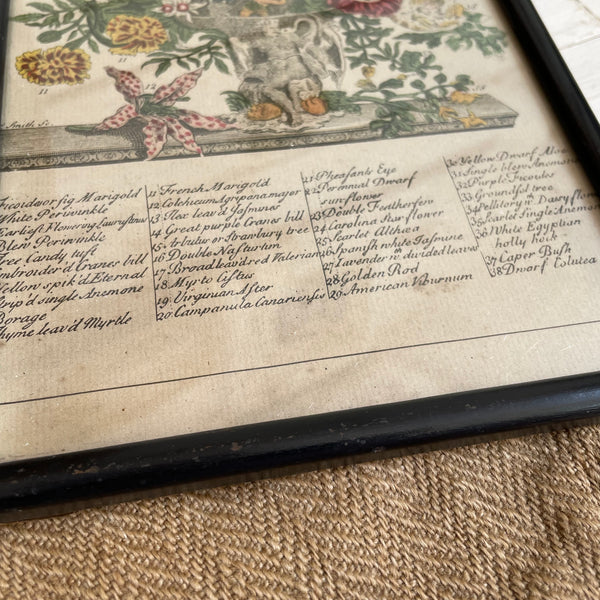 11
11
12
Smith Sc.
Ficoides or fig Marigold
White Periwinkle
Earliest Flowering Laurustinus
Blew Periwinkle
Tree Candy tuft
Embroider'd Cranes bill
Yellow spik'd Eternal
Strip'd single Anemone
Borage
Thyme leav'd Myrtle
11 French Marigold
12 Colchicum Agrypana major
13 Ilex leav'd Jasmine
14 Great purple Cranes bill
15 Arbutus or Strawberry tree
16 Double Nasturtium
17 Broad leav'd red Valerian
18 Myrto Cistus
19 Virginian Aster
20 Campanula Canariensis
21 Pheasants Eye
22 Perennual Dwarf
sunflower
23 Double Featherfew
24 Carolina Starflower
25 Scarlet Althea
26 Spanish white Jasmine
27 Lavender wth divided leaves
28 Golden Rod
29 American Viburnum
30 Yellow Dwarf Aloe
31 Single blew Anemone
32 Purple Ficoides
33 Groundsel tree
34 Pellitory wth Daisy flow
35 Scarlet Single Anemon
36 White Egyptian
holly hock
37 Caper Bush
38 Dwarf Colutea